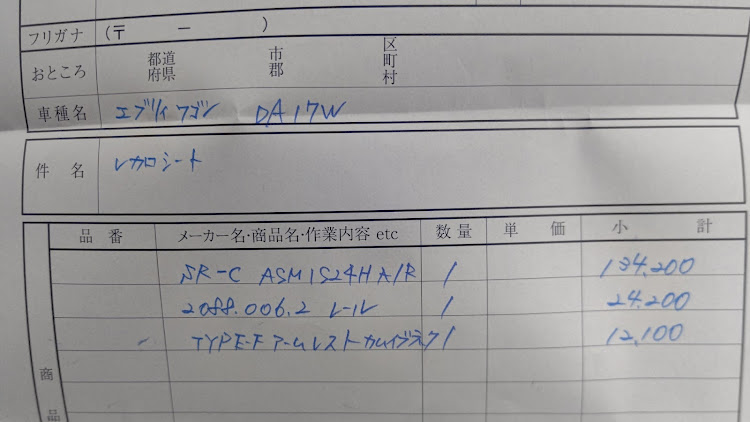 フリガナ (〒 － )
おところ 都道府県 市郡 区町村
車種名 エブリィワゴン DA17W
件名 レカロシート
品番 メーカー名・商品名・作業内容 etc 数量 単価 小計
SR-C ASM IS24H A/R 1 134,200
2088.006.2 レール 1 24,200
TYPE-F アームレスト カムイブラック 1 12,100
商
品